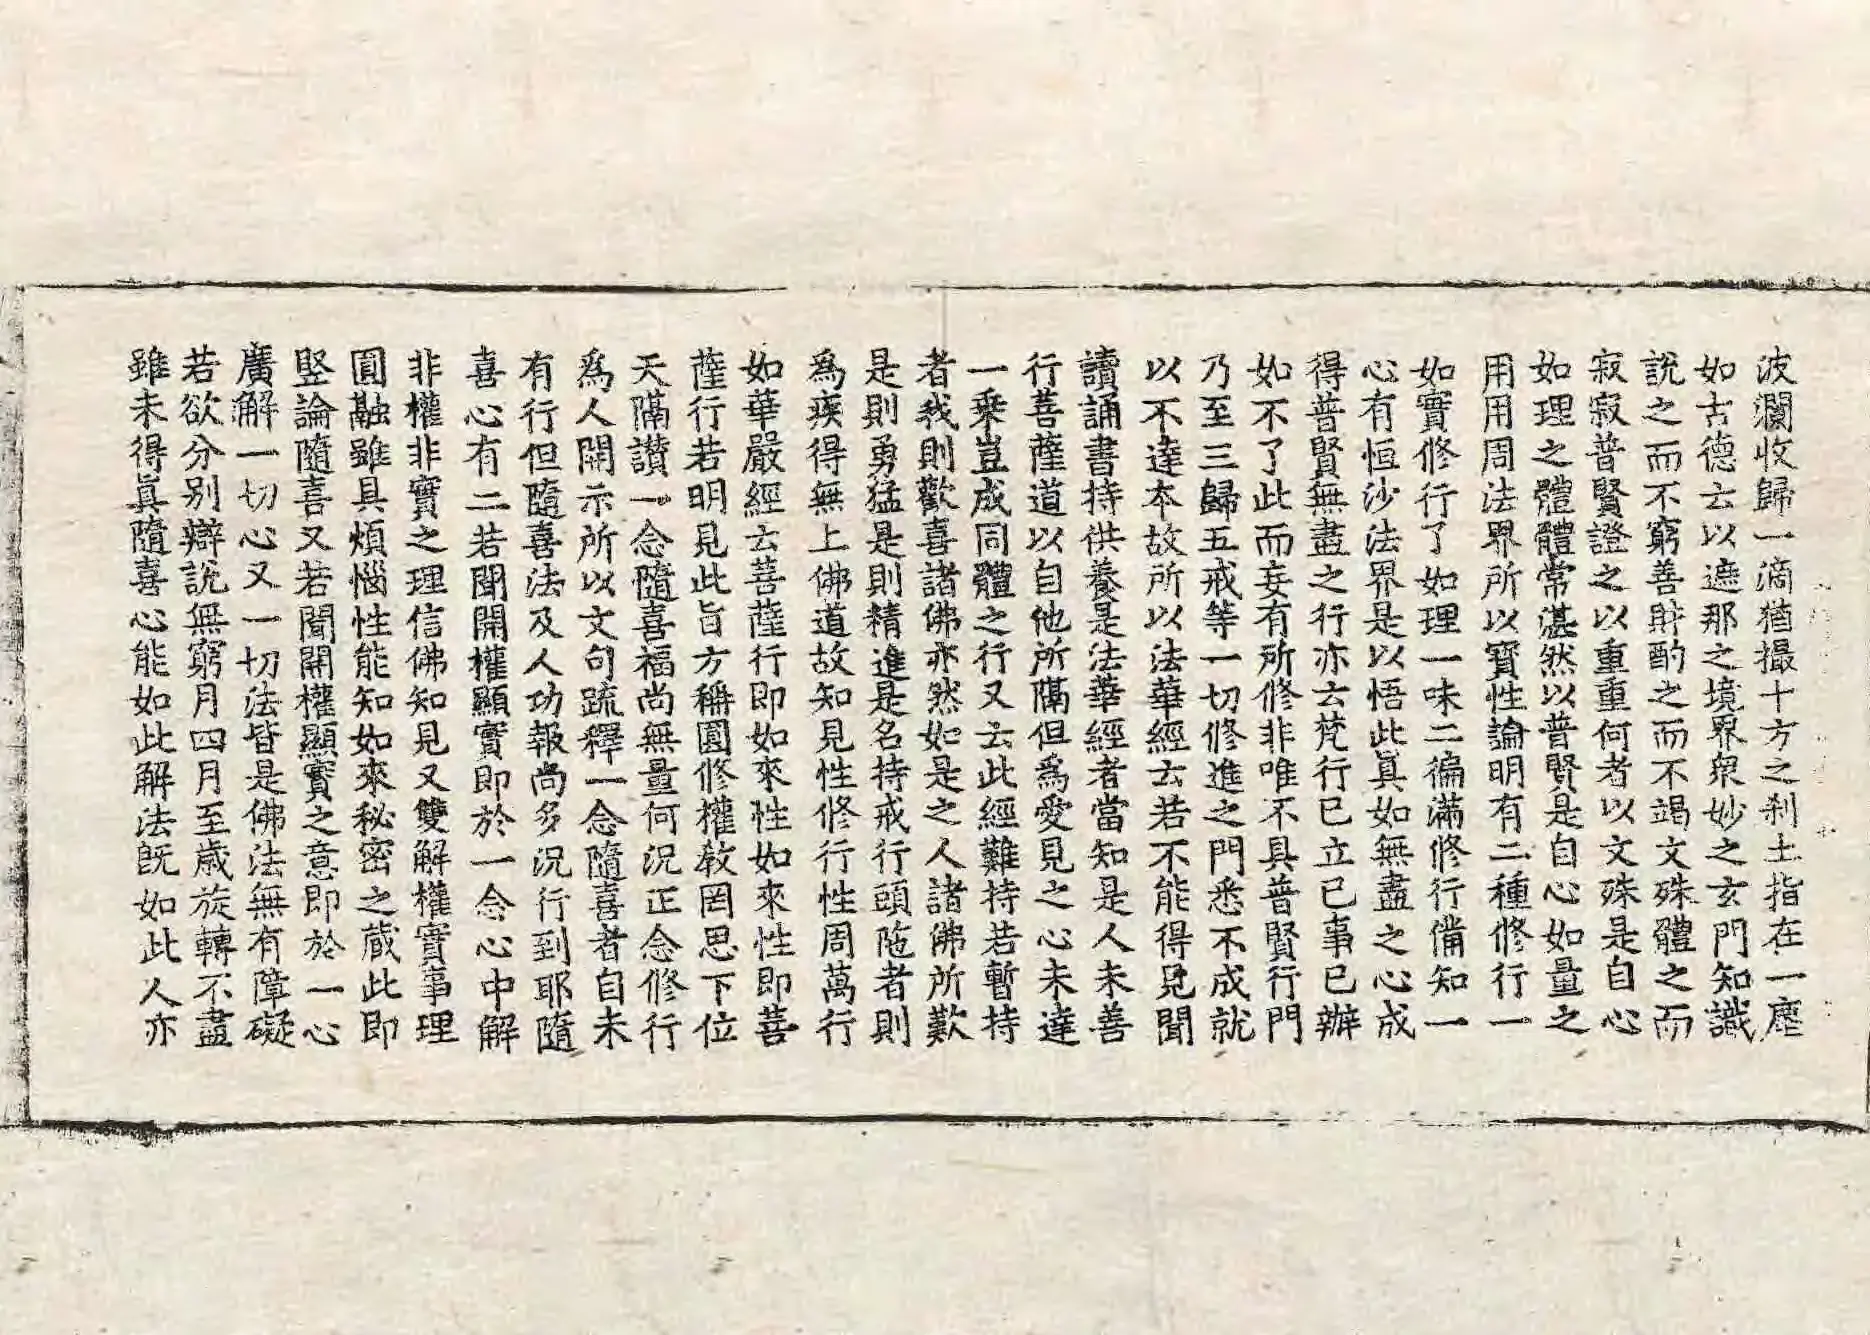 波瀾收歸一滴猶撮十方之刹土指在一塵
如古德云以遮那之境界衆妙之玄門知識
說之而不窮善財酌之而不竭文殊體之而
寂寂普賢證之以重重何者以文殊是自心
如理之體體常湛然以普賢是自心如量之
用用周法界所以寶性論明有二種修行一
如實修行了如理一味二徧滿修行備知一
心有恒沙法界是以悟此眞如無盡之心成
得普賢無盡之行亦云梵行已立已事已辦
如不了此而妄有所修非唯不具普賢行門
乃至三歸五戒等一切修進之門悉不成就
以不達本故所以法華經云若不能得見聞
讀誦書持供養是法華經者當知是人未善
行菩薩道以自他所隔但爲愛見之心未達
一乘豈成同體之行又云此經難持若暫持
者我則歡喜諸佛亦然如是之人諸佛所歎
是則勇猛是則精進是名持戒行頭陁者則
爲疾得無上佛道故知見性修行性周萬行
如華嚴經云菩薩行即如來性如來性即菩
薩行若明見此旨方稱圓修權教罔思下位
天隔讚一念隨喜福尚無量何況正念修行
爲人開示所以文句疏釋一念隨喜者自未
有行但隨喜法及人功報尚多況行到耶隨
喜心有二若聞開權顯實即於一念心中解
非權非實之理信佛知見又雙解權實事理
圓融雖具煩惱性能知如來秘密之蔵此即
竪論隨喜又若聞開權顯實之意即於一心
廣解一切心又一切法皆是佛法無有障礙
若欲分別辯說無窮月四月至歲旋轉不盡
雖未得眞隨喜心能如此解法旣如此人亦